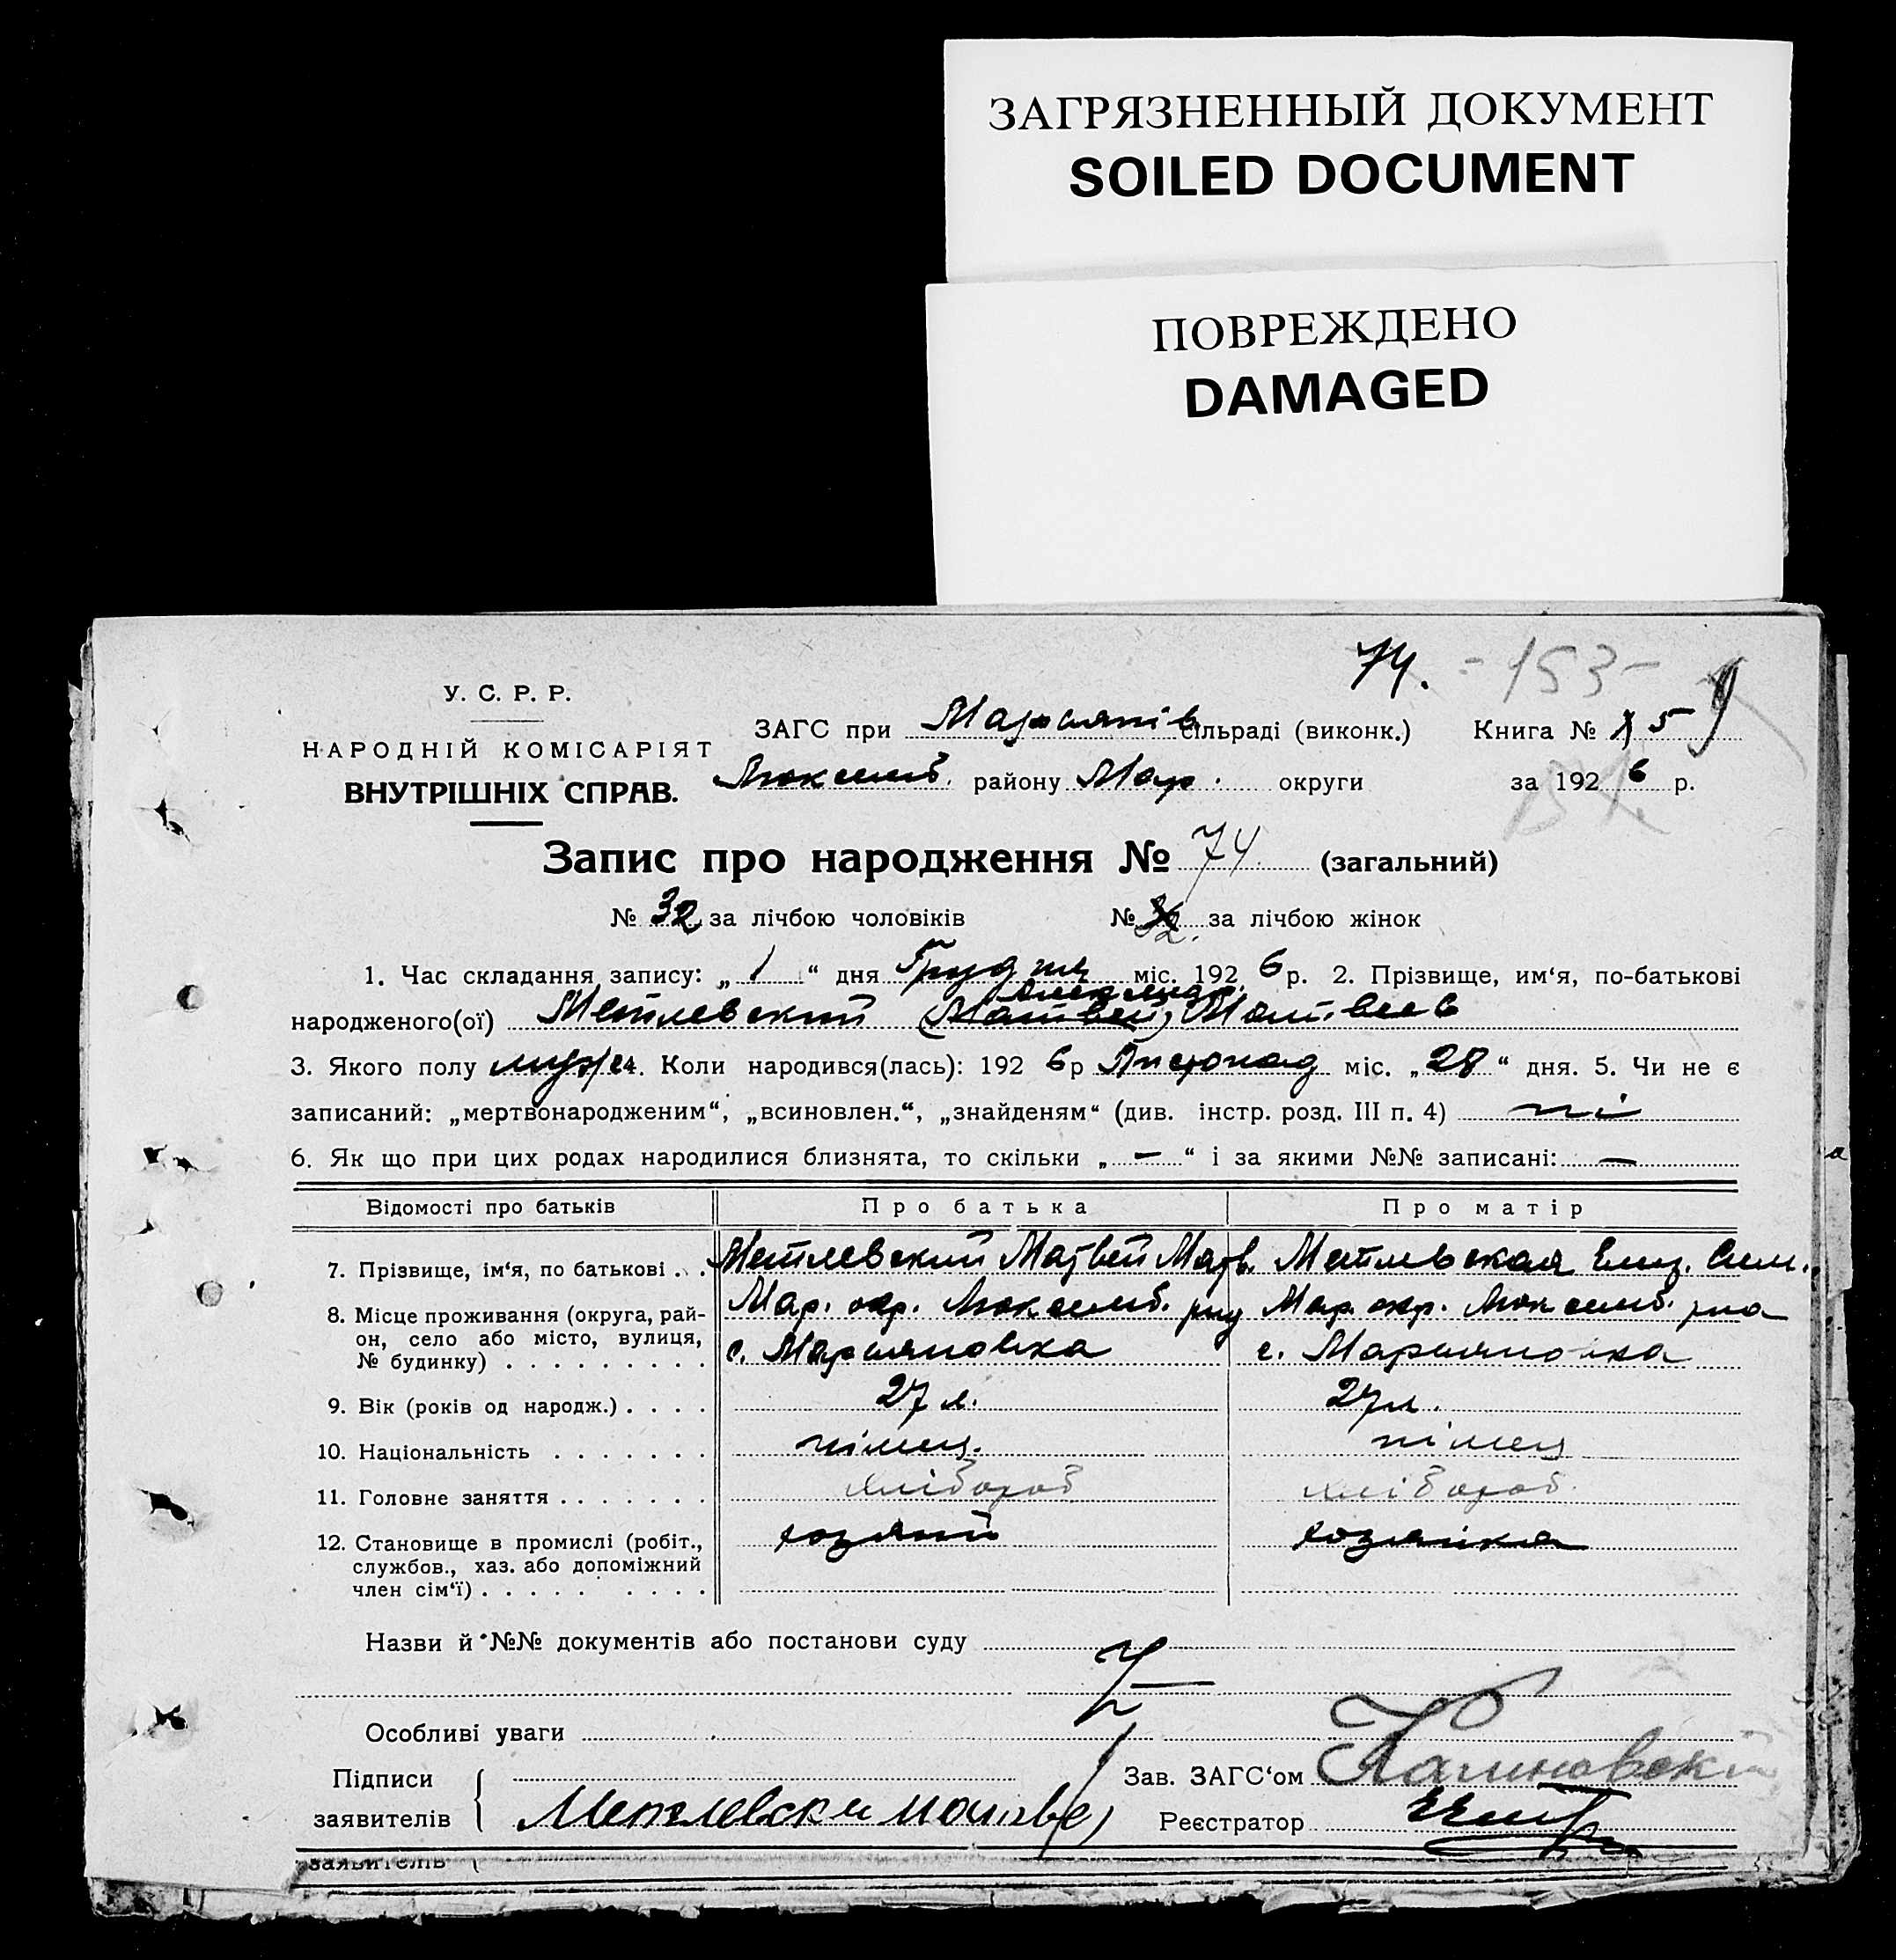 ЗАГРЯЗНЕННЫЙ ДОКУМЕНТ
SOILED DOCUMENT
ПОВРЕЖДЕНО
DAMAGED
74. -153-
У. С. Р. Р.
НАРОДНІЙ КОМІСАРІЯТ
ВНУТРІШНІХ СПРАВ.
ЗАГС при Марьянів сільраді (виконк.) Книга № 5
Люксемб. району Мар. округи за 1926 р.
Запис про народження № 74. (загальний)
№ 32 за лічбою чоловіків № за лічбою жінок
1. Час складання запису: „ 1 “ дня Грудня міс. 1926 р. 2. Прізвище, им‘я, по-батькові
Александр
народженого(ої) Метлевский (Матвей) Матвеев
3. Якого полу муж. Коли народився(лась): 1926 р Листопад міс. „28“ дня. 5. Чи не є
записаний: „мертвонародженим“, „всиновлен.“, „знайденям“ (див. інстр. розд. III п. 4) ні
6. Як що при цих родах народилися близнята, то скільки „ — “ і за якими №№ записані: —
Відомості про батьків Про батька Про матір
7. Прізвище, ім‘я, по батькові . . Метлевский Матвей Матв. Метлевская Елиз. Сем.
8. Місце проживання (округа, рай- Мар. окр. Люксемб. рну Мар. окр. Люксемб. рна
он, село або місто, вулиця,
№ будинку) . . . . . . . . . с. Марьяновка с. Марьяновка
9. Вік (років од народж.) . . . . 27 л. 27 л.
10. Національність . . . . . . . німец. німец
11. Головне заняття . . . . . . . хлібороб хлібороб.
12. Становище в промислі (робіт., хозяин хозяйка
службов., хаз. або допоміжний
член сім‘ї) . . . . . . . . . .
Назви й №№ документів або постанови суду
Особливі уваги
Підписи
Зав. ЗАГС‘ом Калиновский
заявителів Метлевски Матвей
Реєстратор
заявителів